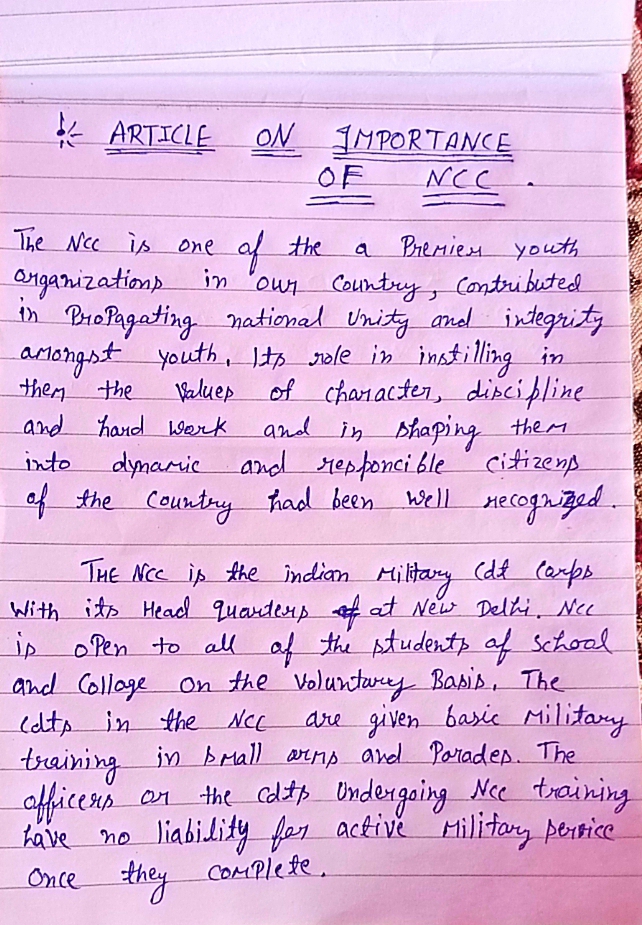 ARTICLE ON IMPORTANCE
OF NCC.
The NCC is one of the a Premier youth
organizations in our Country, Contributed
in ProPagating national Unity and integrity
amongst youth. Its role in instilling in
them the Values of character, discipline
and hard work and in shaping them
into dynamic and responcible citizens
of the Country had been well recognized.
THE NCC is the indian Military Cdt Carps
With its Head quarters at New Delhi. NCC
is oPen to all of the students of School
and Collage on the Voluntary Basis. The
Cdts in the NCC are given basic Military
training in small arms and Parades. The
officers or the cdts Undergoing NCC training
have no liability for active Military service
Once they comPlete.